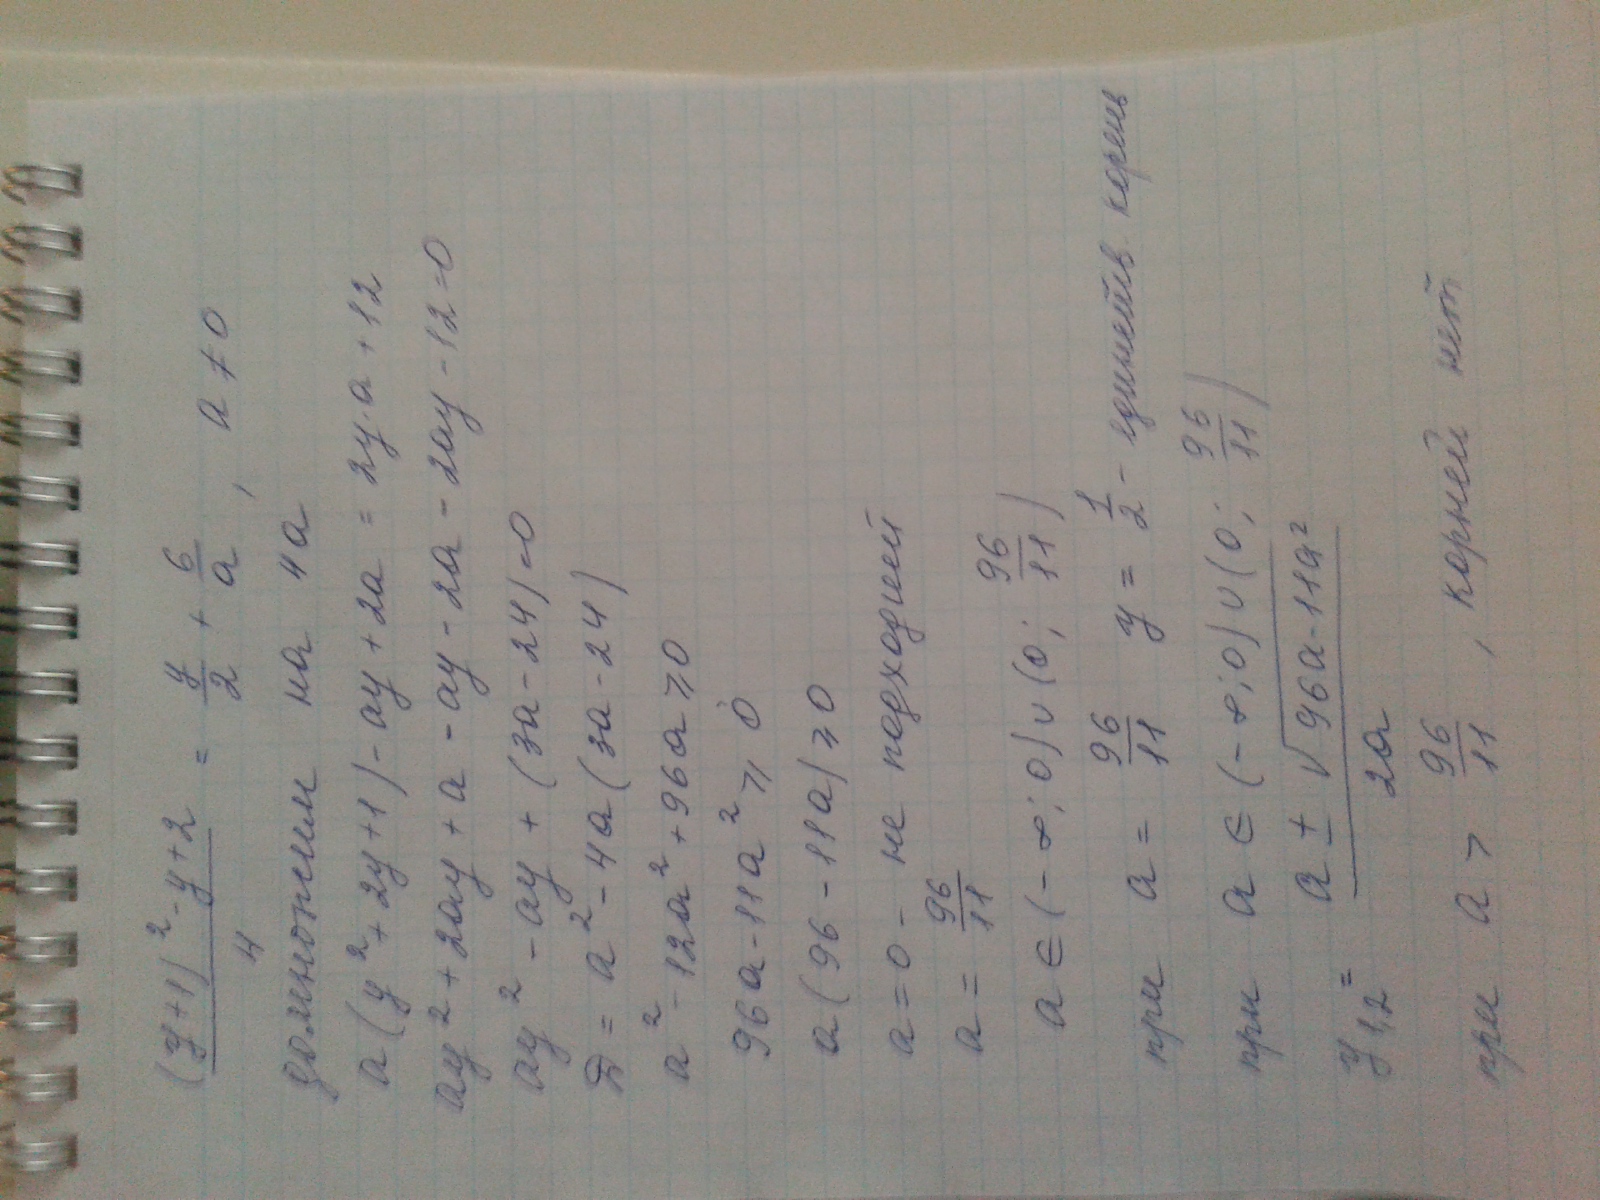 (y+1)²-y+2 / 4 = y/2 + 6/a , a≠0
домножим на 4a
a(y²+2y+1)-ay+2a = 2y·a+12
ay²+2ay+a-ay-2a-2ay-12=0
ay²-ay+(3a-24)=0
D=a²-4a(3a-24)
a²-12a²+96a⩾0
96a-11a²⩾0
a(96-11a)⩾0
a=0- не подходит
a=96/11
a∈(-∞;0)∪(0; 96/11)
при a=96/11 y=1/2 - единств. корень
при a∈(-∞;0)∪(0; 96/11)
y1,2= a±√96a-11a² / 2a
при a>96/11, корней нет